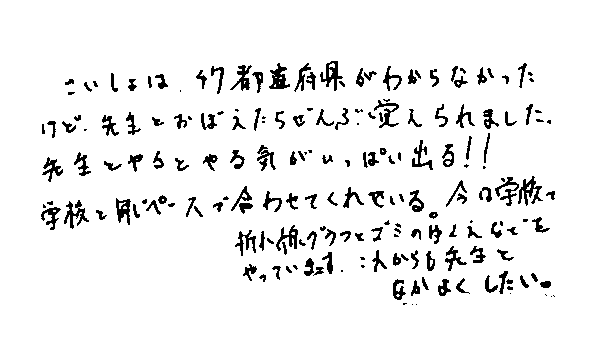 さいしょは、47都道府県がわからなかった
けど、先生とおぼえたらぜんぶ覚えられました。
先生とやるとやる気がいっぱい出る!!
学校と同じペースで合わせてくれている。今は学校で
折れ線グラフとゴミのゆくえなどを
やっています。これからも先生と
なかよくしたい。